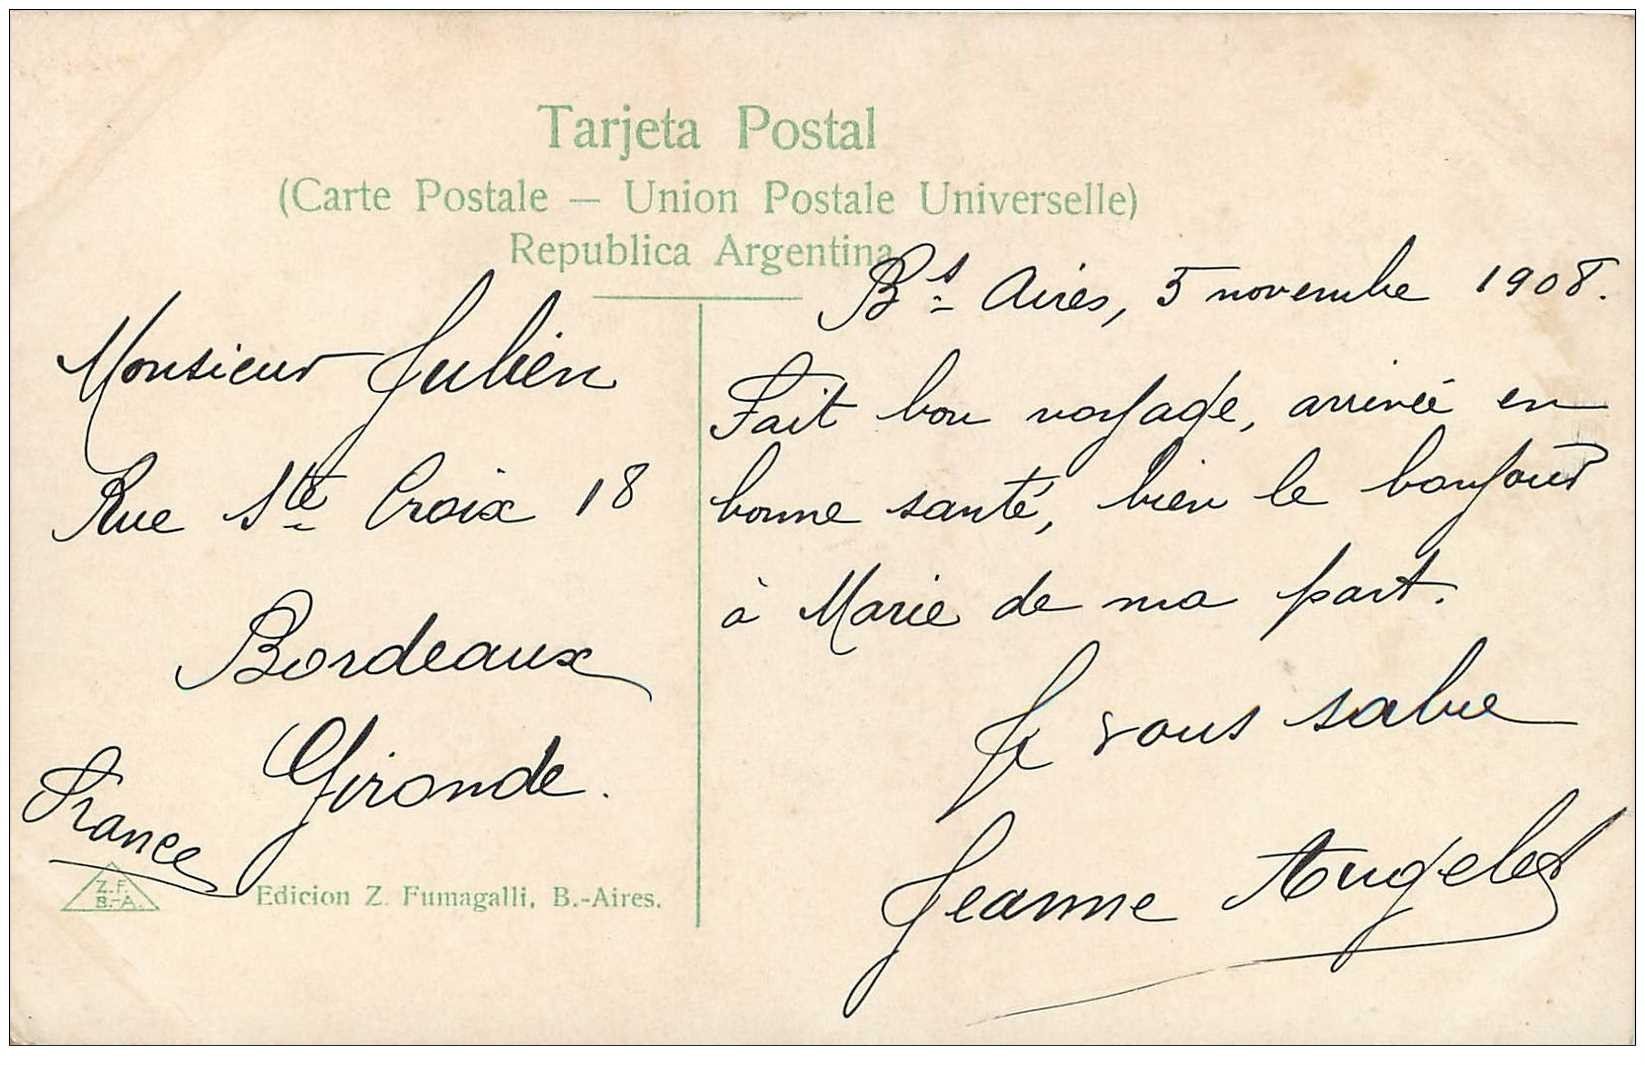 Tarjeta Postal
(Carte Postale — Union Postale Universelle)
Republica Argentina
Bs Aires, 5 novembre 1908.
Monsieur Julien
Rue Ste Croix 18
Bordeaux
Gironde.
France
Z.F.
B.-A.
Edicion Z. Fumagalli, B.-Aires.
Fait bon voyage, arrivée en
bonne santé, bien le bonjour
à Marie de ma part.
Je vous salue
Jeanne